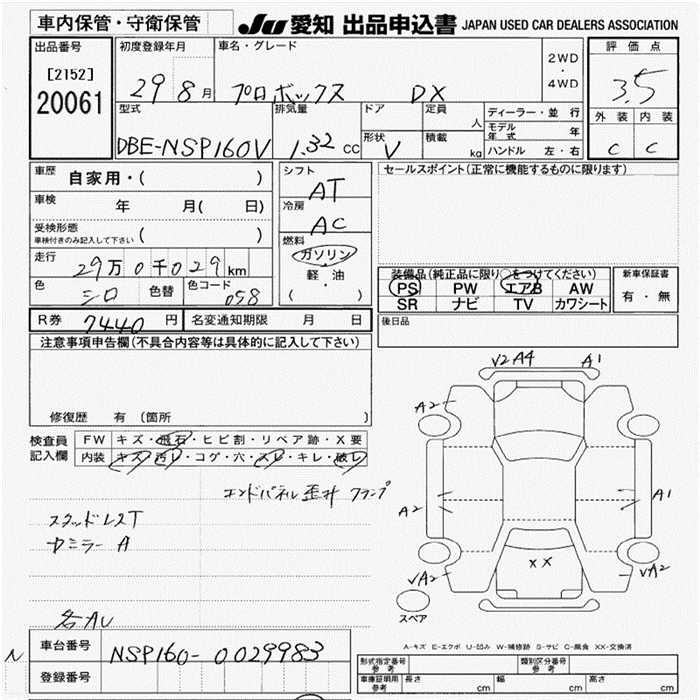 車内保管・守衛保管
JU 愛知 出品申込書 JAPAN USED CAR DEALERS ASSOCIATION
出品番号
[2152]
20061
初度登録年月
29 8 月
車名・グレード
プロボックス DX
2WD
・
4WD
評価点
3.5
外装 内装
C C
型式
DBE-NSP160V
排気量
1.32 CC
ドア
形状
V
定員
人
積載
kg
ディーラー・並行
モデル年式 年
ハンドル 左・右
車歴
自家用・( )
車検
年 月( 日)
受検形態
車検付きのみ記入して下さい ( )
走行
29万0千029km
色
シロ
色替
色コード
058
シフト
AT
冷房
AC
燃料
ガソリン
・
軽・油
( )
セールスポイント(正常に機能するものに限ります)
装備品(純正品に限り○をつけてください)
PS PW エアB AW
SR ナビ TV カワシート
新車保証書
有・無
R券 7440 円 名変通知期限 月 日
後日品
注意事項申告欄(不具合内容等は具体的に記入して下さい)
修復歴 有(箇所 )
検査員
記入欄
FW キズ・飛石・ヒビ割・リペア跡・X要
内装 キズ・汚レ・コゲ・穴・スレ・キレ・破レ
エンドパネル歪 クランプ
スタッドレスT
ミラー A
V2 A4 A1
A2
A2 A1
XX
VA2 VA2
スペア
A-キズ E-エクボ U-凹み W-補修跡 S-サビ C-腐食 XX-交換済
N
車台番号
NSP160-0029983
登録番号
型式指定番号
参考
類別区分番号
参考
車庫証明用
参考
長さ cm 幅 cm 高さ cm